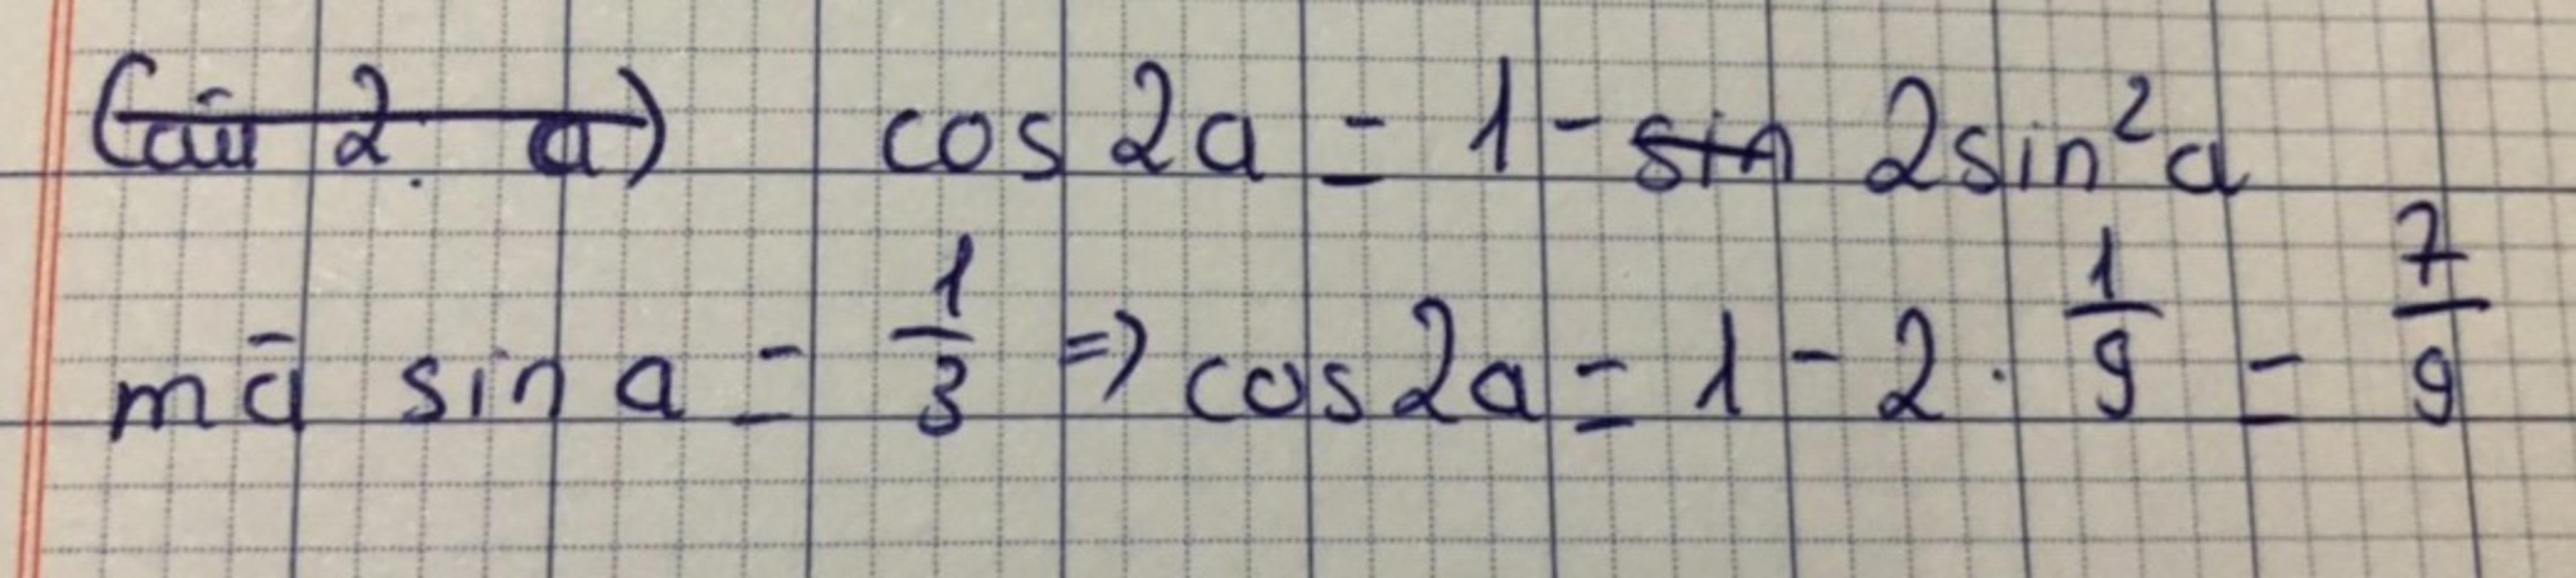 Câu 2. a) cos 2a = 1 - sin 2sin²a
mà sin a = 1/3 => cos 2a = 1 - 2 . 1/9 = 7/9